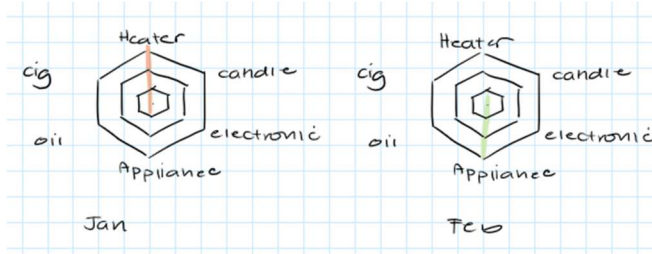 Heater
cig
candle
oil
electronic
Appliance
Jan
Heater
cig
candle
oil
electronic
Appliance
Feb